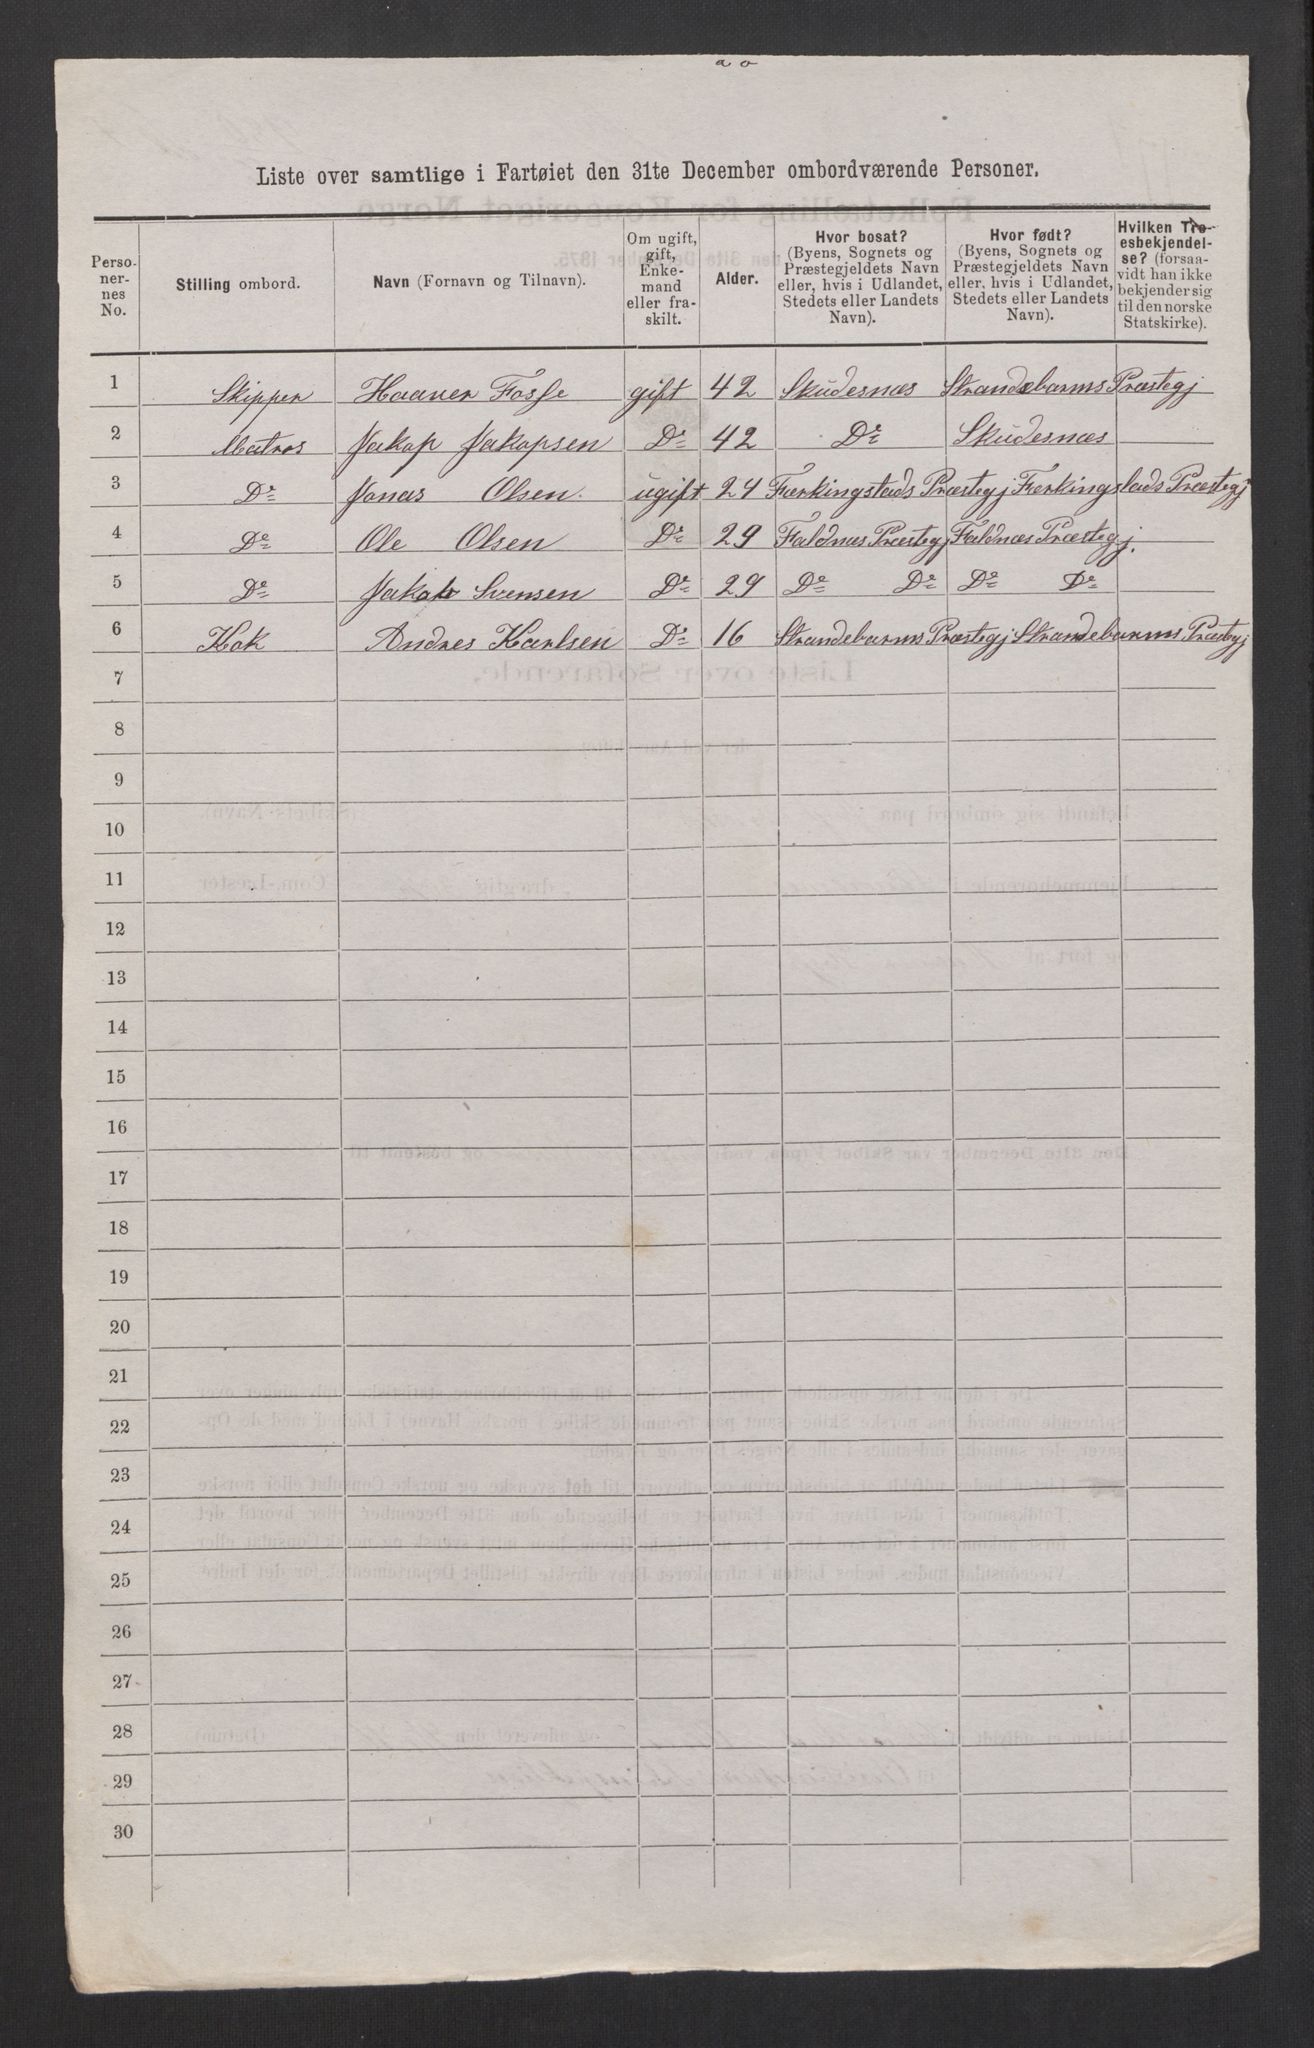 Liste over samtlige i Fartøiet den 31te December ombordværende Personer.
Personernes No. | Stilling ombord. | Navn (Fornavn og Tilnavn). | Om ugift, gift, Enkemand eller fraskilt. | Alder. | Hvor bosat? (Byens, Sognets og Præstegjeldets Navn eller, hvis i Udlandet, Stedets eller Landets Navn). | Hvor født? (Byens, Sognets og Præstegjeldets Navn eller, hvis i Udlandet, Stedets eller Landets Navn). | Hvilken Troesbekjendelse? (forsaavidt han ikke bekjender sig til den norske Statskirke).
1 Skipper Haaver Fosse gift 42 Skudesnæs Strandebarms Præstegj
2 Matros Jakop Jakopsen Do 42 Do Skudesnæs
3 Do Jonas Olsen. ugift 24 Færkingstads Præstegj Færkingstads Præstegj
4 Do Ole Olsen Do 29 Faldnæs Præstegj Faldnæs Præstegj.
5 Do Jakob Svensen Do 29 Do Do Do Do
6 Kok Andres Karlsen Do 16 Strandebarms Præstegj Strandebarms Præstegj
7
8
9
10
11
12
13
14
15
16
17
18
19
20
21
22
23
24
25
26
27
28
29
30